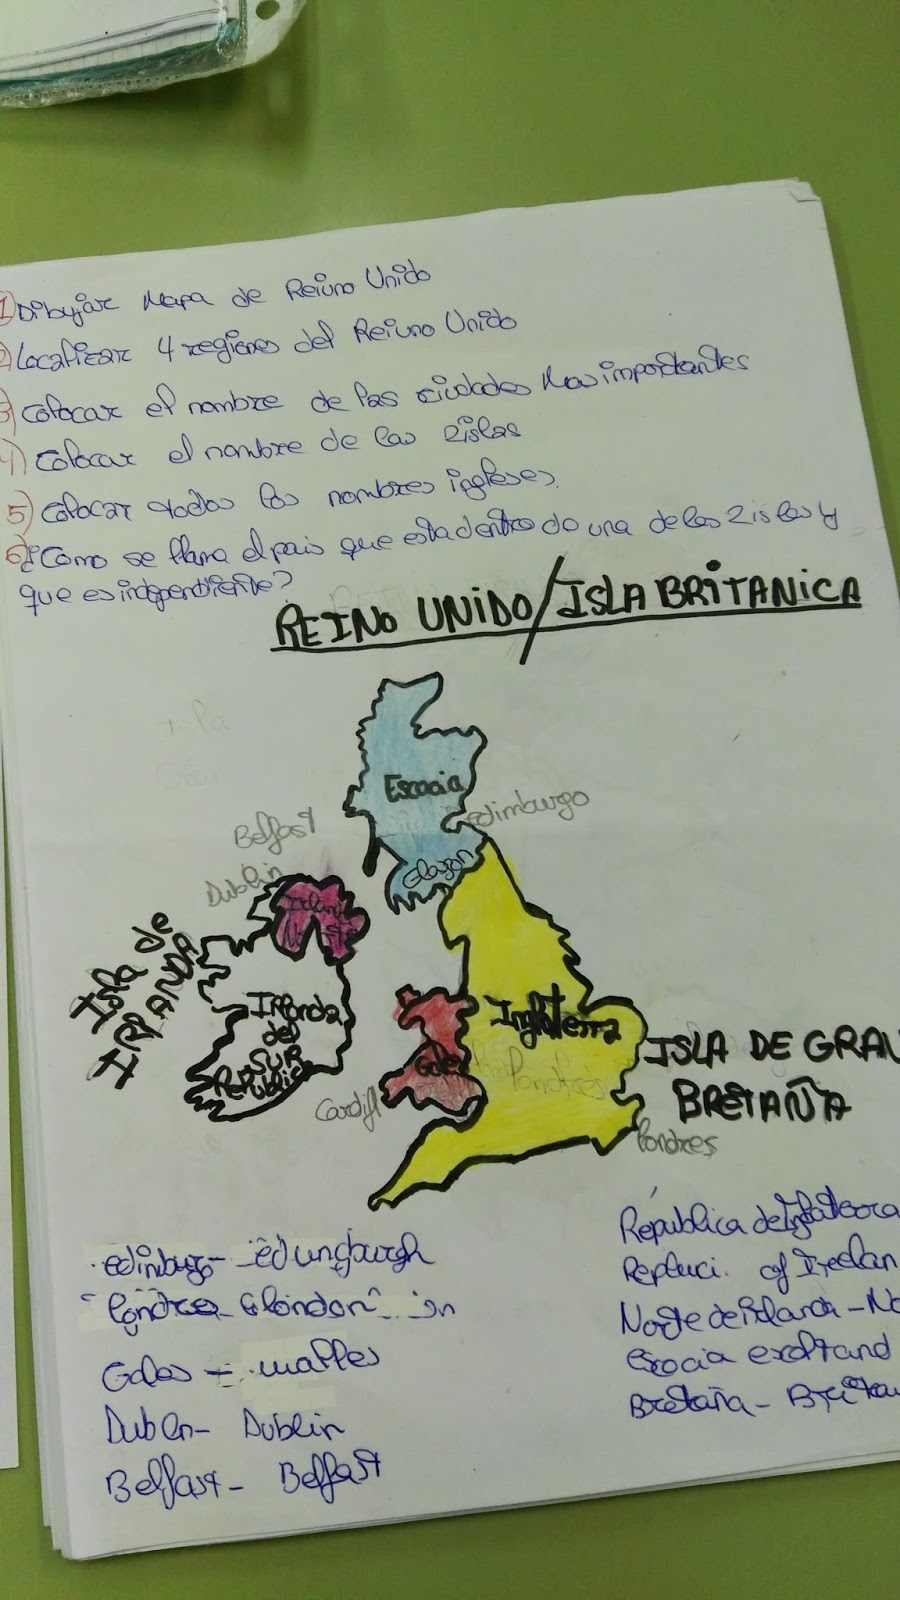 1) Dibujar Mapa de Reiuno Unido
2) Localizar 4 regiones del Reiuno Unido
3) Colocar el nombre de las ciudades Mas importantes
4) Colocar el nombre de las 2 islas
5) Colocar todos los nombres ingleses.
6) ¿Como se llama el pais que esta dentro do una de las 2 islas y
que es independiente?
REINO UNIDO/ISLA BRITANICA
Escocia
edimburgo
Belfast
Glazon
Dublin
Isla de
IRLANDA
IRlanda
del
SUR
Republica
Inglaterra
Gales
Londres
ISLA DE GRAN
BRETAÑA
Cardiff
Londres
edimburgo - edungburgh
Londres - london
Gales - walles
Dublin - Dublin
Belfast - Belfast
Republica de
Repluci. of Ireelan
Norte de irlanda - No
Escocia excltand
Bretaña - Bretan